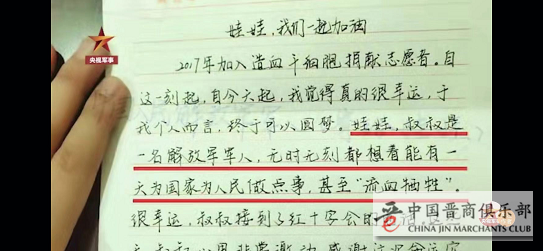 央视军事
娃娃,我们一起加油
2017年加入造血干细胞捐献志愿者。自
这一刻起,自今天起,我觉得真的很幸运,于
我个人而言,终于可以圆梦。娃娃,叔叔是
一名解放军军人,无时无刻都想着能有一
天为国家为人民做点事,甚至“流血牺牲”。
很幸运,叔叔接到了红十字会的
中国晋商俱乐部
CHINA JIN MERCHANTS CLUB